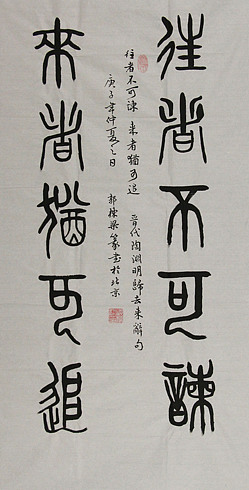 往者不可諫
往者不可諫 来者猶可追 晋代陶淵明歸去来辭句
庚子年仲夏之日
篆書於北京
来者猶可追